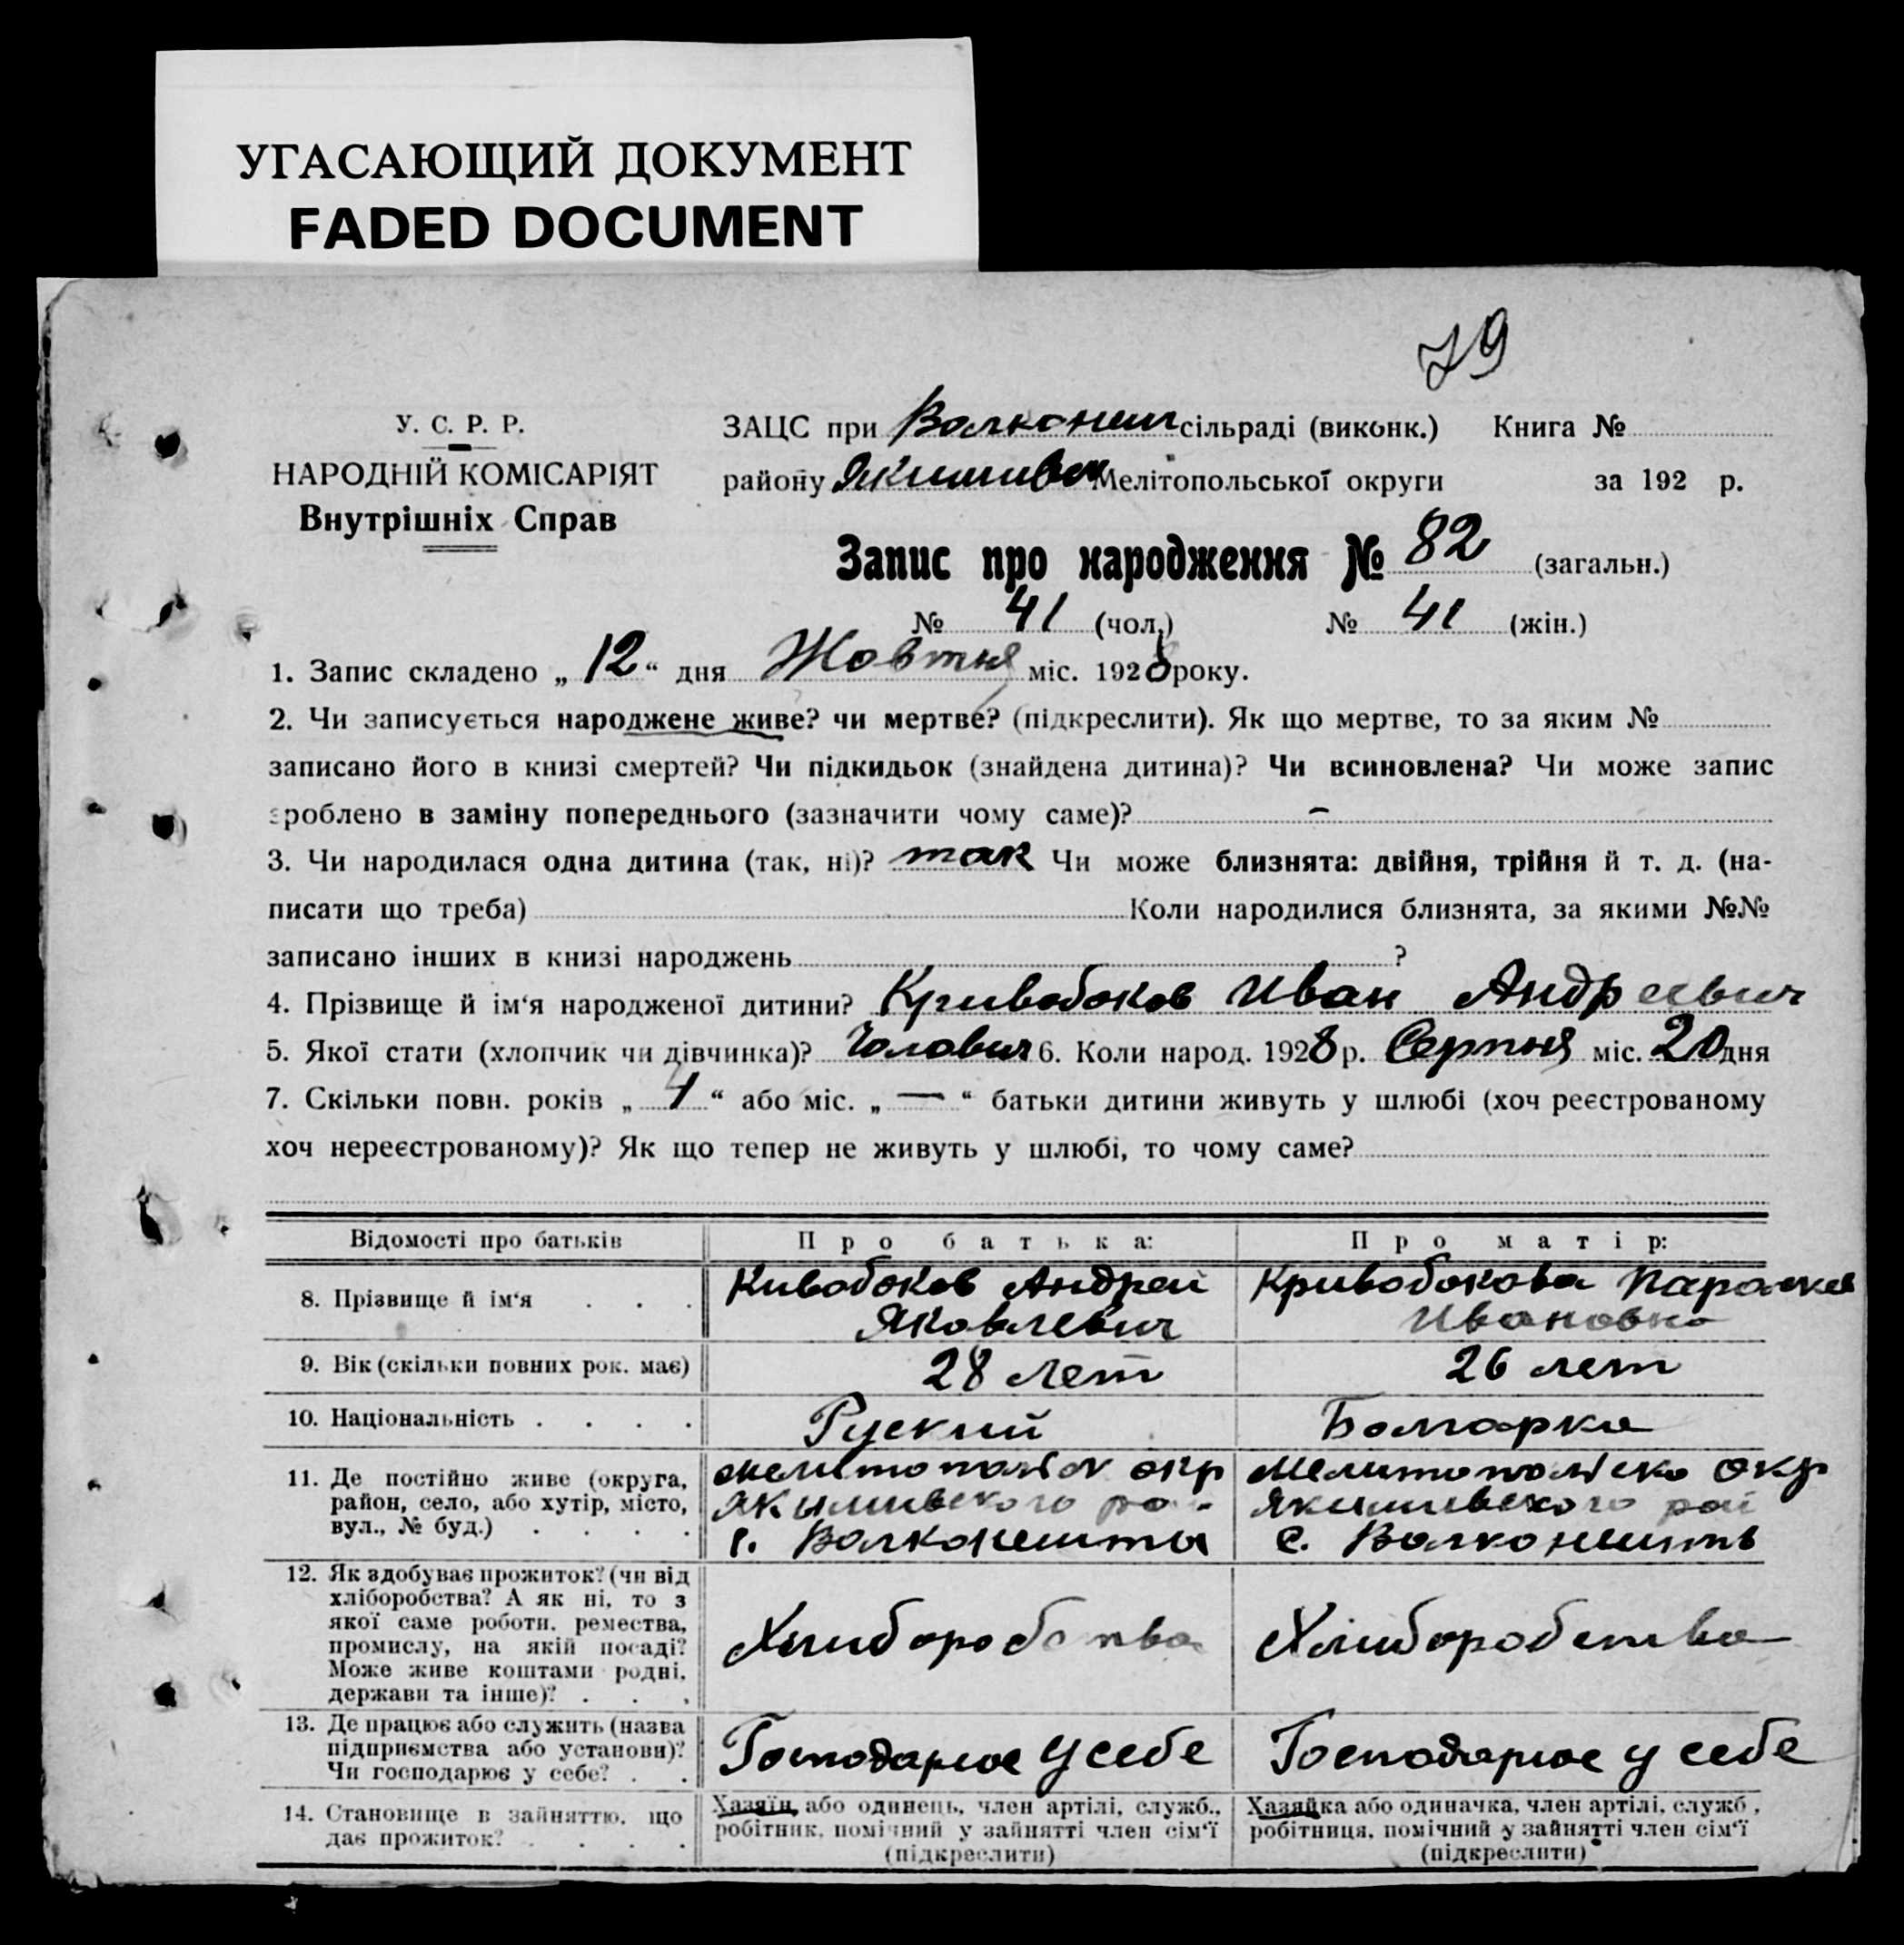 УГАСАЮЩИЙ ДОКУМЕНТ
FADED DOCUMENT
79
У. С. Р. Р.
НАРОДНІЙ КОМІСАРІЯТ
Внутрішніх Справ
ЗАЦС при Волконеш сільраді (виконк.) Книга №
району Якимивск Мелітопольської округи за 192 р.
Запис про народження № 82 (загальн.)
№ 41 (чол.) № 41 (жін.)
1. Запис складено „ 12 “ дня Жовтня міс. 1928 року.
2. Чи записується народжене живе? чи мертве? (підкреслити). Як що мертве, то за яким №
записано його в книзі смертей? Чи підкидьок (знайдена дитина)? Чи всиновлена? Чи може запис
зроблено в заміну попереднього (зазначити чому саме)? –
3. Чи народилася одна дитина (так, ні)? так Чи може близнята: двійня, трійня й т. д. (на-
писати що треба) Коли народилися близнята, за якими №№
записано інших в книзі народжень ?
4. Прізвище й ім‘я народженої дитини? Кривобоков Иван Андреевич
5. Якої стати (хлопчик чи дівчинка)? Чолович 6. Коли народ. 1928 р. Серпня міс. 20 дня
7. Скільки повн. років „ 1 “ або міс. „ — “ батьки дитини живуть у шлюбі (хоч реєстрованому
хоч нереєстрованому)? Як що тепер не живуть у шлюбі, то чому саме?
Відомості про батьків Про батька: Про матір:
8. Прізвище й ім‘я . . . Кивобоков Андреи Яковлевич Кривобокова Ивановна
9. Вік (скільки повних рок. має) 28 лет 26 лет
10. Національність . . . . Руский Болгарка
11. Де постійно живе (округа,
район, село, або хутір, місто,
вул., № буд.) . . . .
окр
Якимивского
с. Волконешты
окр
Якимивского рай
с. Волконешть
12. Як здобуває прожиток? (чи від
хліборобства? А як ні, то з
якої саме роботи, ремества,
промислу, на якій посаді?
Може живе коштами родні,
держави та інше)? . . .
Хлиборобства
Хлиборобства
13. Де працює або служить (назва
підприємства або установи)?
Чи господарює у себе? . .
Господарюе у себе
Господарюе у себе
14. Становище в зайняттю, що
дає прожиток? . . . .
Хазяїн, або одинець, член артілі, служб.,
робітник, помічний у зайнятті член сім‘ї
(підкреслити)
Хазяйка або одиначка, член артілі, служб.,
робітниця, помічний у зайнятті член сім‘ї
(підкреслити)